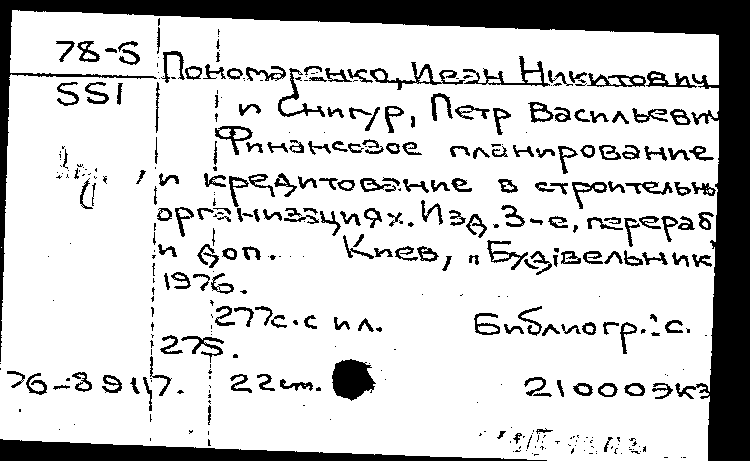 78-5 Пономаренко, Иван Никитович
551 и Снигур, Петр Васильевич
Финансовое планирование
и кредитование в строительны
организациях. Изд. 3-е, перераб
и доп. Киев, „Будівельник"
1976.
277с. с ил. Библиогр.: с.
275.
76-89117. 22 cm. 21000экз